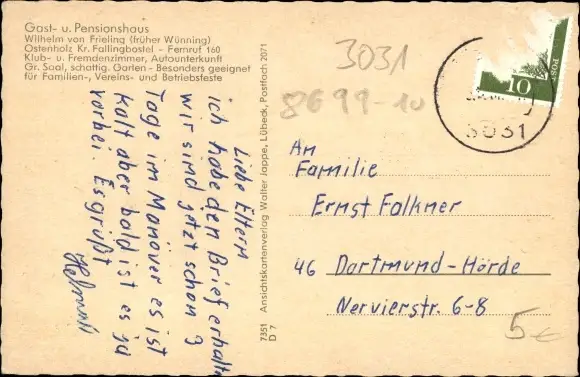 Gast- u. Pensionshaus
Wilhelm von Frieling (früher Wünning)
Ostenholz Kr. Fallingbostel - Fernruf 160
Klub- u. Fremdenzimmer, Autounterkunft
Gr. Saal, schattig. Garten - Besonders geeignet
für Familien-, Vereins- und Betriebsfeste
Liebe Eltern
ich habe den Brief erhalten
wir sind jetzt schon 3
Tage im Manöver es ist
kalt aber bald ist es ja
vorbei. Es grüßt
Helmut
7351 Ansichtskartenverlag Walter Jappe, Lübeck, Postfach 2071
D 7
3031
8699-10
10
POST
3031
An
Familie
Ernst Falkner
46 Dortmund-Hörde
Nervierstr. 6-8
5€